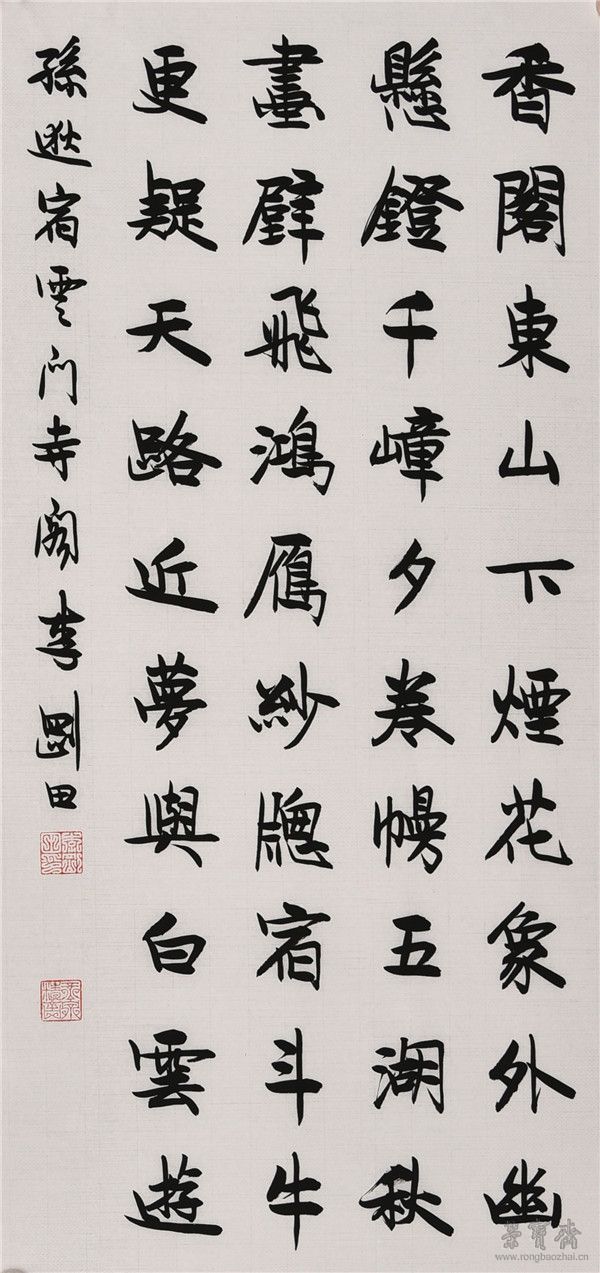 香閣東山下煙花象外幽
懸鐙千嶂夕卷幔五湖秋
畫壁飛鴻雁紗牕宿斗牛
更疑天路近夢與白雲遊
孫逖宿雲门寺阁李剛田
榮寶齋
www.rongbaozhai.cn